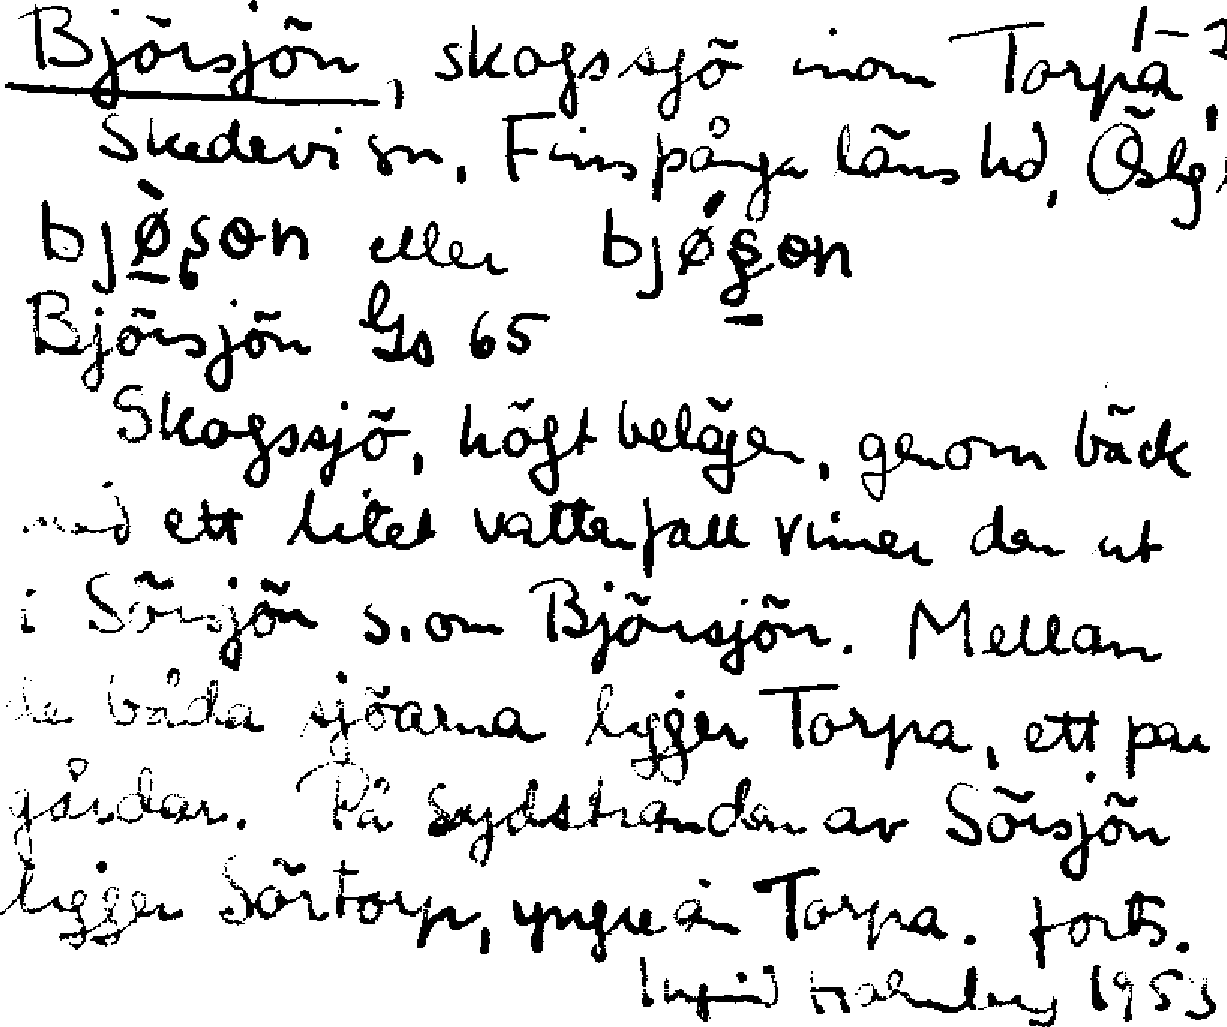 Björsjön, skogssjö inom Torpa, 1-
Skedevi sn, Finspånga läns hd, Östg
bjø̀ṣɵn eller bjǿṣɵn
Björsjön Gs 65
Skogssjö, högt belägen, genom bäck
med ett litet vattenfall rinner den ut
i Sörsjön s. om Björsjön. Mellan
de båda sjöarna ligger Torpa, ett par
gårdar. På sydstranden av Sörsjön
ligger Sörtorp, yngre än Torpa. forts.
Ingrid Holmberg 1953